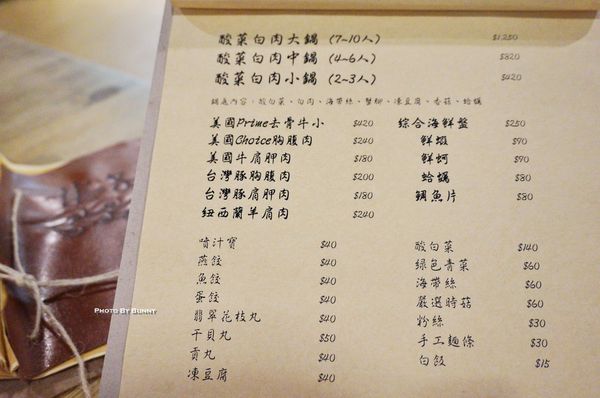 酸菜白肉大鍋 (7~10人) $1,250
酸菜白肉中鍋 (4~6人) $820
酸菜白肉小鍋 (2~3人) $420
鍋底內容：酸白菜、白肉、海帶絲、蟹腳、凍豆腐、香菇、蛤蠣
美國Prime去骨牛小 $420
美國Choice胸腹肉 $240
美國牛肩胛肉 $180
台灣豚胸腹肉 $200
台灣豚肩胛肉 $180
紐西蘭羊肩肉 $240
綜合海鮮盤 $250
鮮蝦 $90
鮮蚵 $90
蛤蠣 $80
鯛魚片 $80
噴汁寶 $40
燕餃 $40
魚餃 $40
蛋餃 $40
翡翠花枝丸 $40
干貝丸 $50
貢丸 $40
凍豆腐 $40
酸白菜 $140
綠色青菜 $60
海帶絲 $60
嚴選時菇 $60
粉絲 $30
手工麵條 $30
白飯 $15
PHOTO BY BUNNY